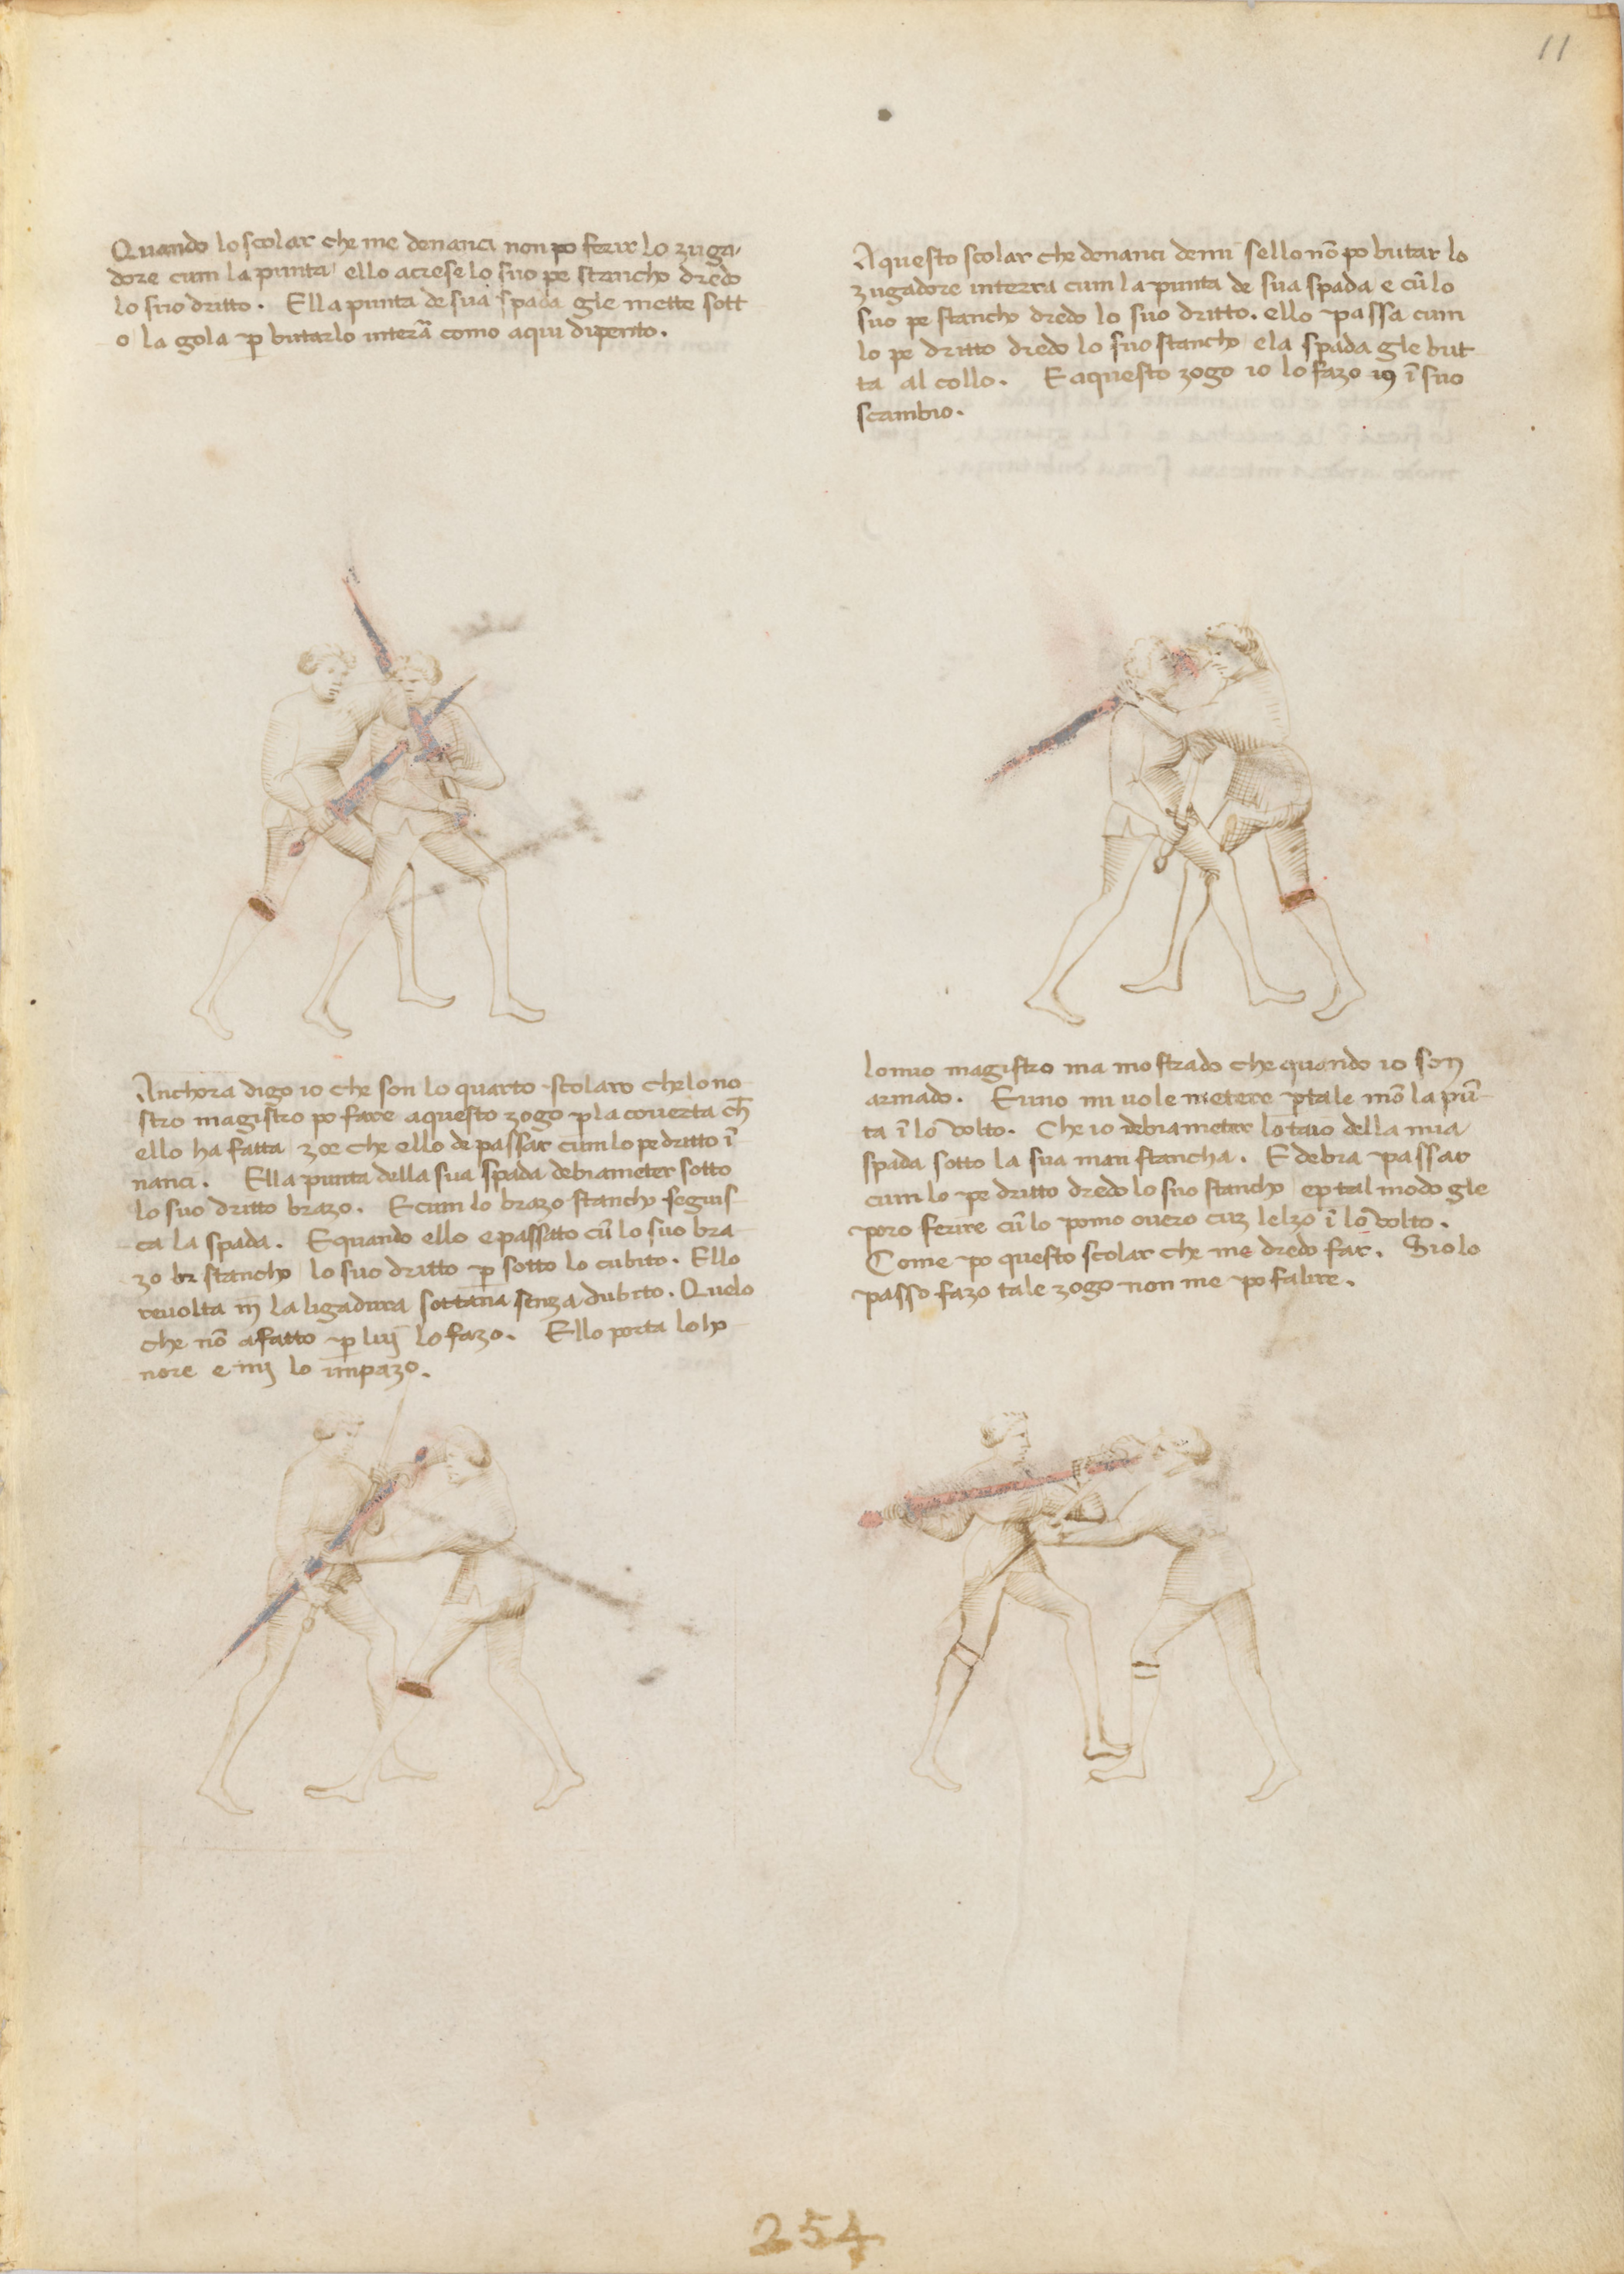 11
Quando lo scolar che me denanci non po ferir lo zuga-
dore cum la punta ello acrese lo suo pe stancho dredo
lo suo dritto. Ella punta de sua spada gle mette sott
o la gola p butarlo interã como aqui dipento.
Aquesto scolar che denanci de mi sello nõ po butar lo
zugadore interra cum la punta de sua spada e cũ lo
suo pe stancho dredo lo suo dritto. ello passa cum
lo pe dritto dredo lo suo stancho ela spada gle but
ta al collo. E aquesto zogo io lo fazo ĩ suo
scambio.
Anchora digo io che son lo quarto scolaro che lo no
stro magistro po fare aquesto zogo p la coverta ch̃
ello ha fatta zoe che ello de passar cum lo pe dritto ĩ
nanci. Ella punta della sua spada debia meter sotto
lo suo dritto brazo. E cum lo brazo stancho seguis
ca la spada. E quando ello e passato cũ lo suo bra
zo stancho lo suo dritto p sotto lo cubito. Ello
revolta in la ligadura sottana senza dubito. Quelo
che nõ a fatto p luy lo fazo. Ello porta lo ho
nore e my lo impazo.
Lo mio magistro ma mostrado che quando io son
armado. E uno mi vole metere p tale mõ la pũ
ta ĩ lo volto. Che io debia meter lo taio della mia
spada sotto la sua man stancha. E debia passar
cum lo pe dritto dredo lo suo stancho e p tal modo gle
poro ferire cũ lo pomo overo cuz lelzo ĩ lo volto.
Come po questo scolar che me dredo far. Sio lo
passo fazo tale zogo non me po falire.
254